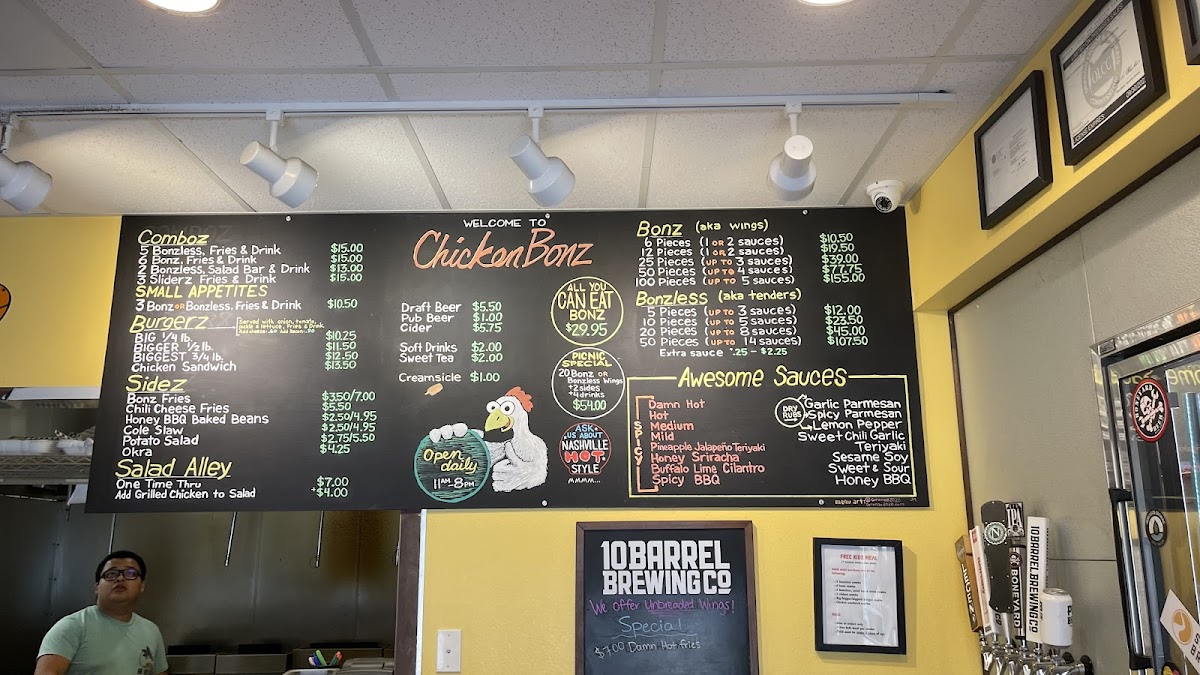 WELCOME TO
ChickenBonz
Comboz
5 Bonzless, Fries & Drink $15.00
3 Bonz, Fries & Drink $15.00
2 Bonzless, Salad Bar & Drink $13.00
3 Sliderz Fries & Drink $15.00
SMALL APPETITES
3 Bonz OR Bonzless, Fries & Drink $10.50
Burgerz
Served with onion, tomato,
pickle & lettuce, Fries & Drink
BIG 1/4 lb. $10.25
BIGGER 1/2 lb. $11.50
BIGGEST 3/4 lb. $12.50
Chicken Sandwich $13.50
Sidez
Bonz Fries $3.50/7.00
Chili Cheese Fries $5.50
Honey BBQ Baked Beans $2.50/4.95
Cole Slaw $2.50/4.95
Potato Salad $2.75/5.50
Okra $4.25
Salad Alley
One Time Thru $7.00
Add Grilled Chicken to Salad +$4.00
Draft Beer $5.50
Pub Beer $1.00
Cider $5.75
Soft Drinks $2.00
Sweet Tea $2.00
Creamsicle $1.00
Open
daily
11AM-8PM
ALL YOU
CAN EAT
BONZ
$29.95
PICNIC
SPECIAL
20 Bonz OR
Bonzless Wings
+2 sides
+4 drinks
$54.00
ASK
US ABOUT
NASHVILLE
HOT
STYLE
MMMM...
Bonz (aka wings)
6 Pieces (1 OR 2 sauces) $10.50
12 Pieces (1 OR 2 sauces) $19.50
25 Pieces (UP TO 3 sauces) $39.00
50 Pieces (UP TO 4 sauces) $77.75
100 Pieces (UP TO 5 sauces) $155.00
Bonzless (aka tenders)
5 Pieces (UP TO 3 sauces) $12.00
10 Pieces (UP TO 5 sauces) $23.50
20 Pieces (UP TO 8 sauces) $45.00
50 Pieces (UP TO 14 sauces) $107.50
Extra sauce .25 - $2.25
Awesome Sauces
SPICY
Damn Hot
Hot
Medium
Mild
Pineapple Jalapeño Teriyaki
Honey Sriracha
Buffalo Lime Cilantro
Spicy BBQ
DRY
RUBS
Garlic Parmesan
Spicy Parmesan
Lemon Pepper
Sweet Chili Garlic
Teriyaki
Sesame Soy
Sweet & Sour
Honey BBQ
10 BARREL
BREWING CO
We Offer Unbreaded Wings!
Special
$7.00 Damn Hot fries
FREE KIDS MEAL
OLCC
IPA
BONEYARD
10 BARREL BREWING CO